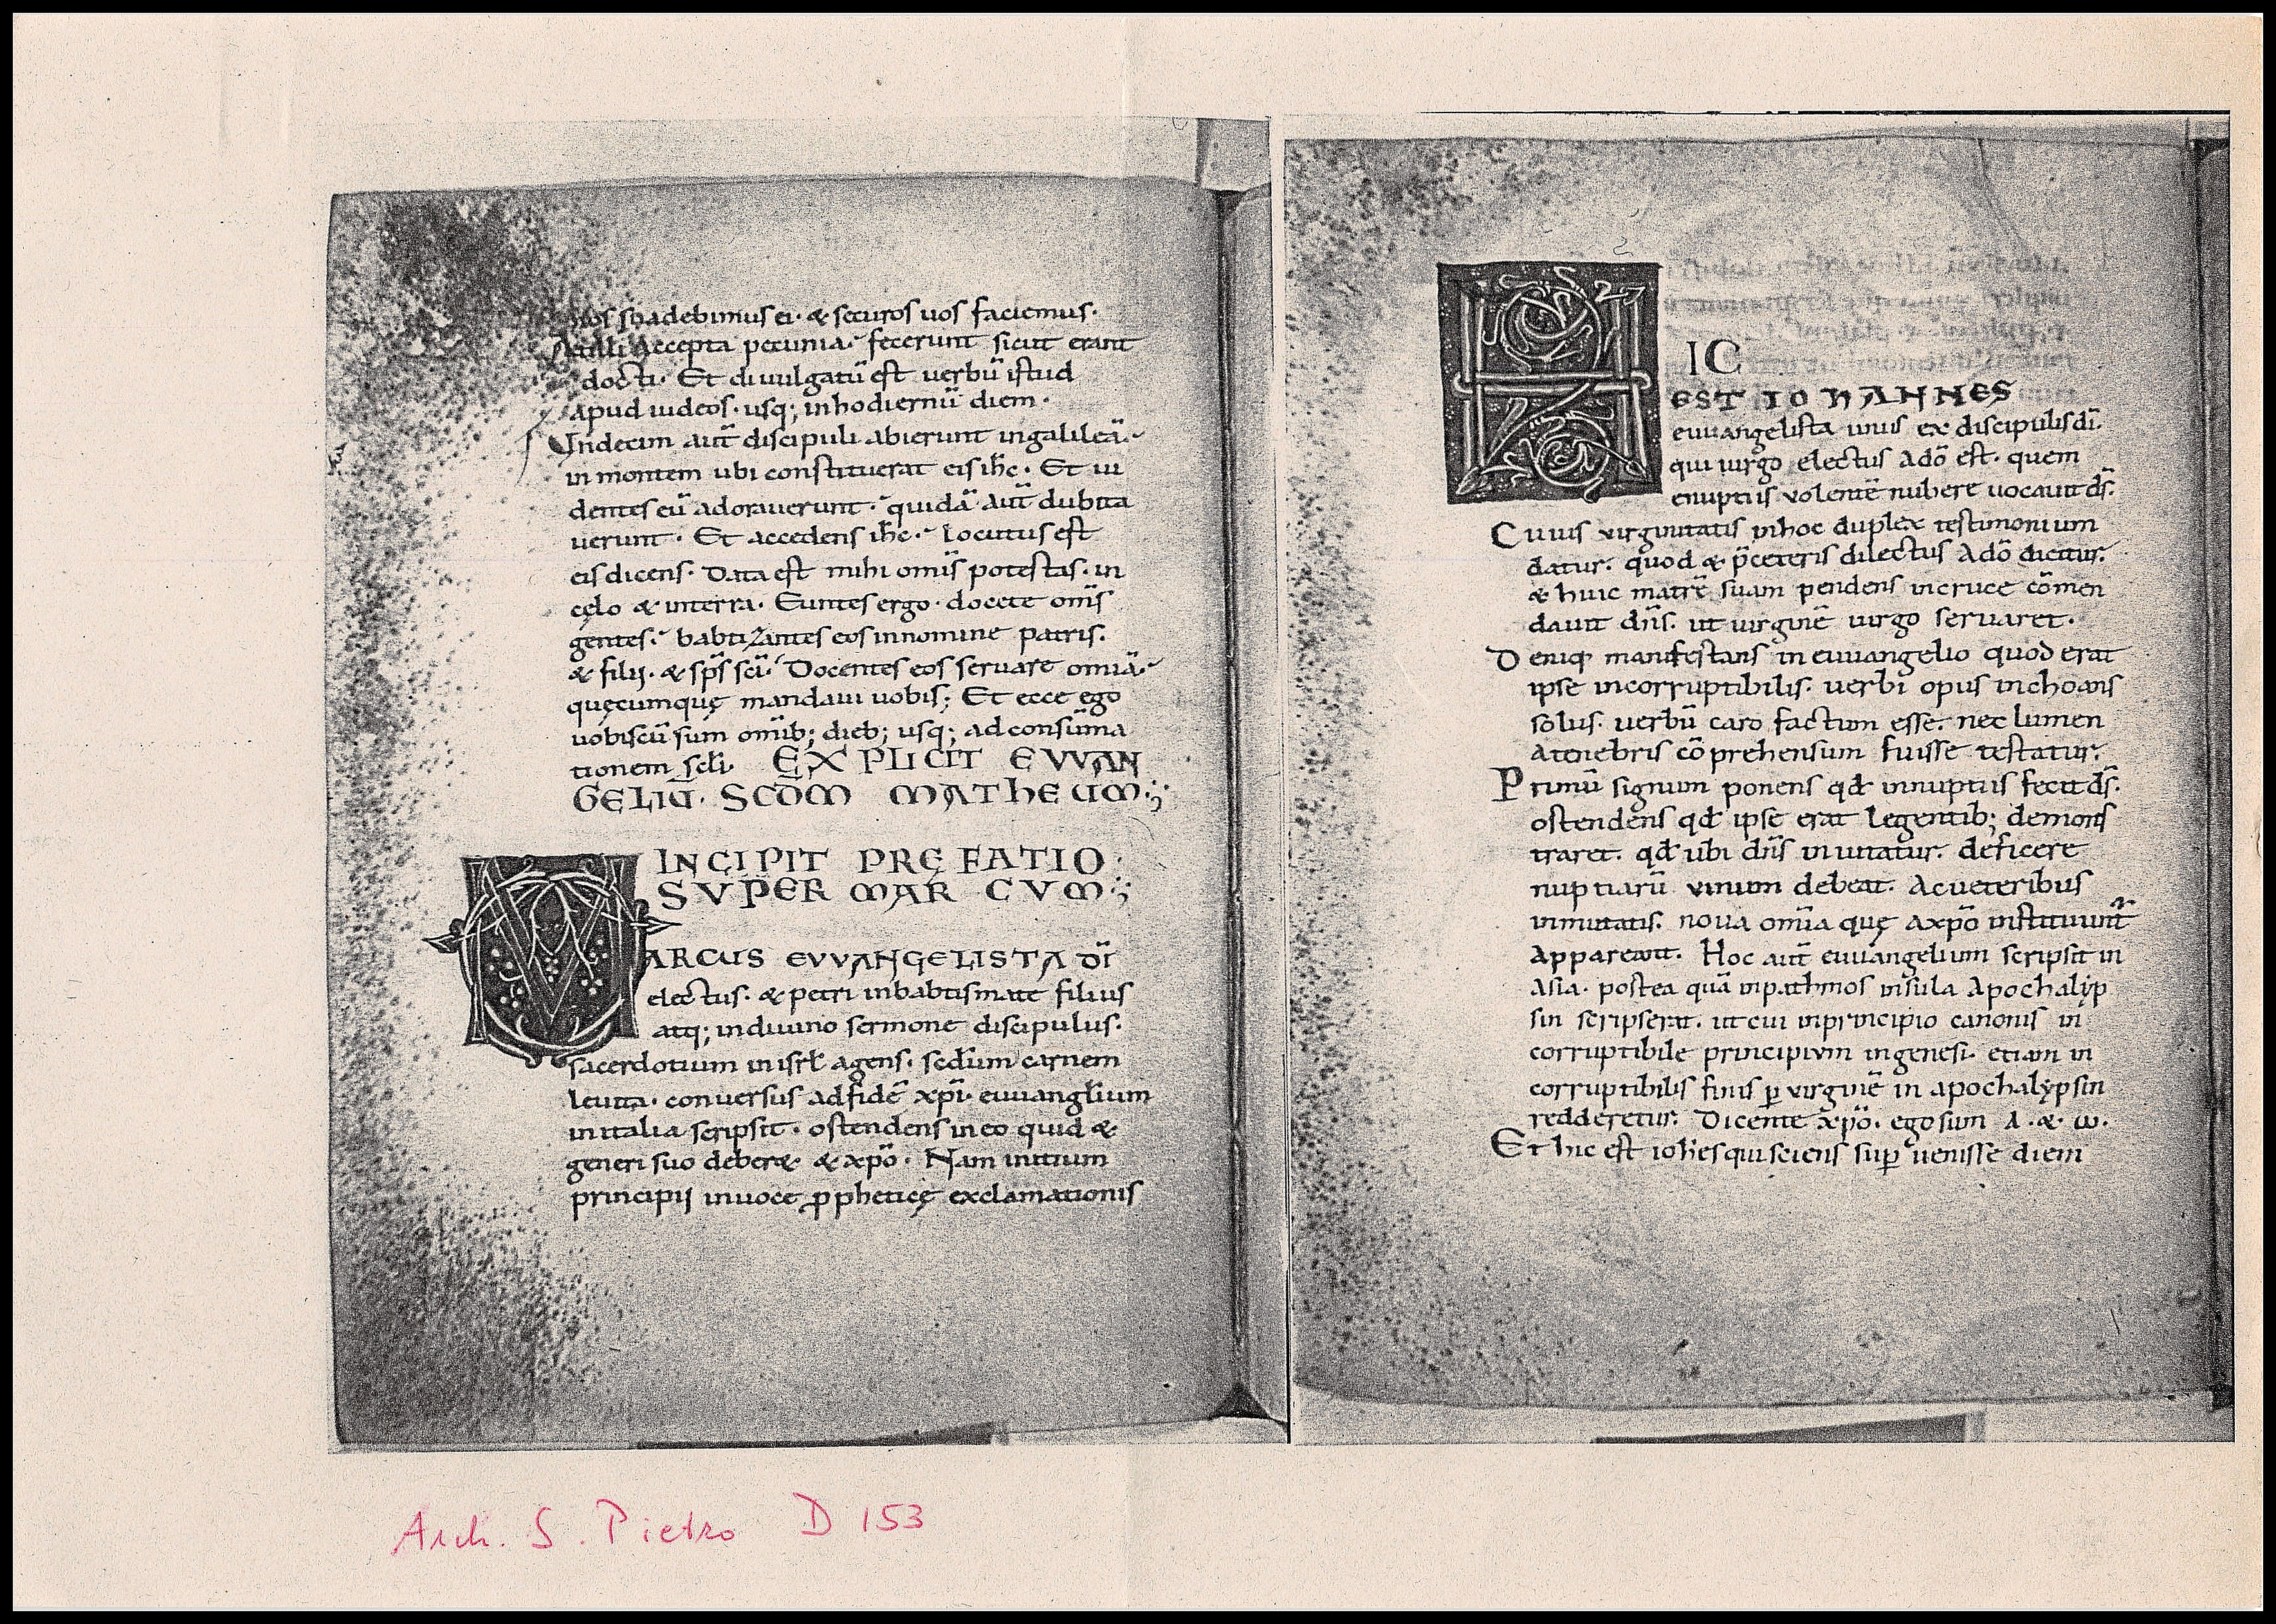 nos suadebimus ei · & securos uos faciemus ·
At illi Accepta pecunia · fecerunt sicut erant
docti · Et diuulgatū est uerbū istud
apud iudeos · usq; inhodiernū diem ·
Undecim aut̄ discipuli abierunt ingalileā ·
in montem ubi constituerat eis ih̄c · Et ui
dentes eū adorauerunt · quidā aut̄ dubita
uerunt · Et accedens ih̄c · Locutus est
eis dicens · Data est mihi omis̄ potestas · in
cęlo & interra · Euntes ergo · docete om̄s
gentes · babtizantes eos innomine patris ·
& filij · & sp̄s sc̄i · Docentes eos seruare omīa ·
quęcumquę mandaui uobis ; Et ecce ego
uobiscū sum omīb; dieb; usq; adconsūma
tionem sc̄li · EXPLICIT EVVAN
GELIŪ · SCD̄M MATHEUM ·;
INCIPIT PRĘFATIO ·
SVPER MARCVM ·;
MARCUS EVVANGELISTA DĪ
electus · & petri inbabtismate filius
atq; indiuino sermone discipulus ·
sacerdotium in isrl̄ agens · sed̄um carnem
leuita · conuersus adfidē xp̄i · euuanglium
initalia scripsit · ostendens in eo quid &
generi suo deber& & xp̄o · Nam initium
principij inuoce ꝓpheticę exclamationis
HIC
EST IOHANNES
euuangelista unus ex discipulis di ·
qui uirgo electus Adō est · quem
enuptiis volentē nubere uocauit ds̄ ·
Cuius virginitatis inhoc duplex testimonium
datur · quod & p̄ceteris dilectus Adō dicitur ·
& huic matrē suam pendens incruce cōmen
dauit dn̄s · ut uirginē uirgo seruaret ·
Deniq; manifestans in euuangelio quod erat
ipse incorruptibilis · uerbi opus inchoans
solus · uerbū caro factum esse · nec lumen
Atenebris cōprehensum fuisse testatur ·
Primū signum ponens qd̄ innuptiis fecit ds̄ ·
ostendens qd̄ ipse erat legentib; demons
traret · qd̄ ubi dn̄s inuitatur · deficere
nuptiarū vinum debeat · Acueteribus
inmutatis · noua omīa quę Axp̄o instituunt̄
Appareant · Hoc aut̄ euuangelium scripsit in
Asia · postea quā inpathmos insula Apochalyp
sin scripserat · ut cui inprincipio canonis in
corruptibile principivm ingenesi · etiam in
corruptibilis finis ꝑ virginē in apochalypsin
redderetur · Dicente xp̄o · egosum A · & ω ·
Et hic est ioh̄es qui sciens suꝑ uenisse diem
Arch. S. Pietro D 153